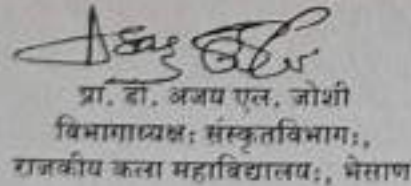 प्रा. डॉ. अजय एल. जोशी
विभागाध्यक्षः संस्कृतविभागः,
राजकीय कला महाविद्यालयः, भेसाण